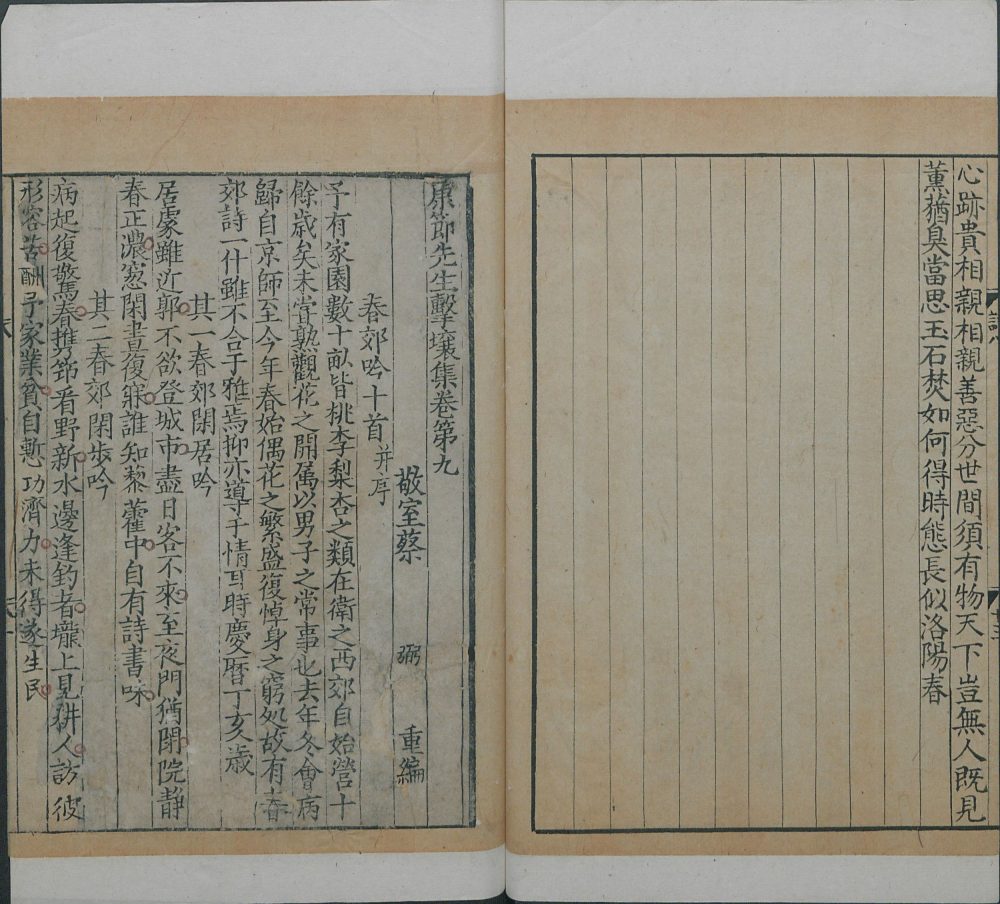 心跡貴相親相親善惡分世間須有物天下豈無人既見
薰蕕臭當思玉石焚如何得時態長似洛陽春
康節先生擊壤集卷第九
敬室蔡 弼 重編
春郊吟十首并序
予有家園數十畝皆桃李梨杏之類在衛之西郊自始營十
餘歲矣未甞熟觀花之開属以男子之常事也去年冬會病
歸自京師至今年春始偶花之繁盛復悼身之窮处故有春
郊詩一什雖不合于雅焉抑亦導于情耳時慶曆丁亥歲
其一春郊閑居吟
居處雖近郭不欲登城市盡日客不來至夜門猶閉院静
春正濃窓閑晝復寐誰知藜藿中自有詩書味
其二春郊閑步吟
病起復驚春携筇看野新水邊逢釣者壠上見耕人訪彼
形容苦酬予家業貧自慙功濟力未得遂生民